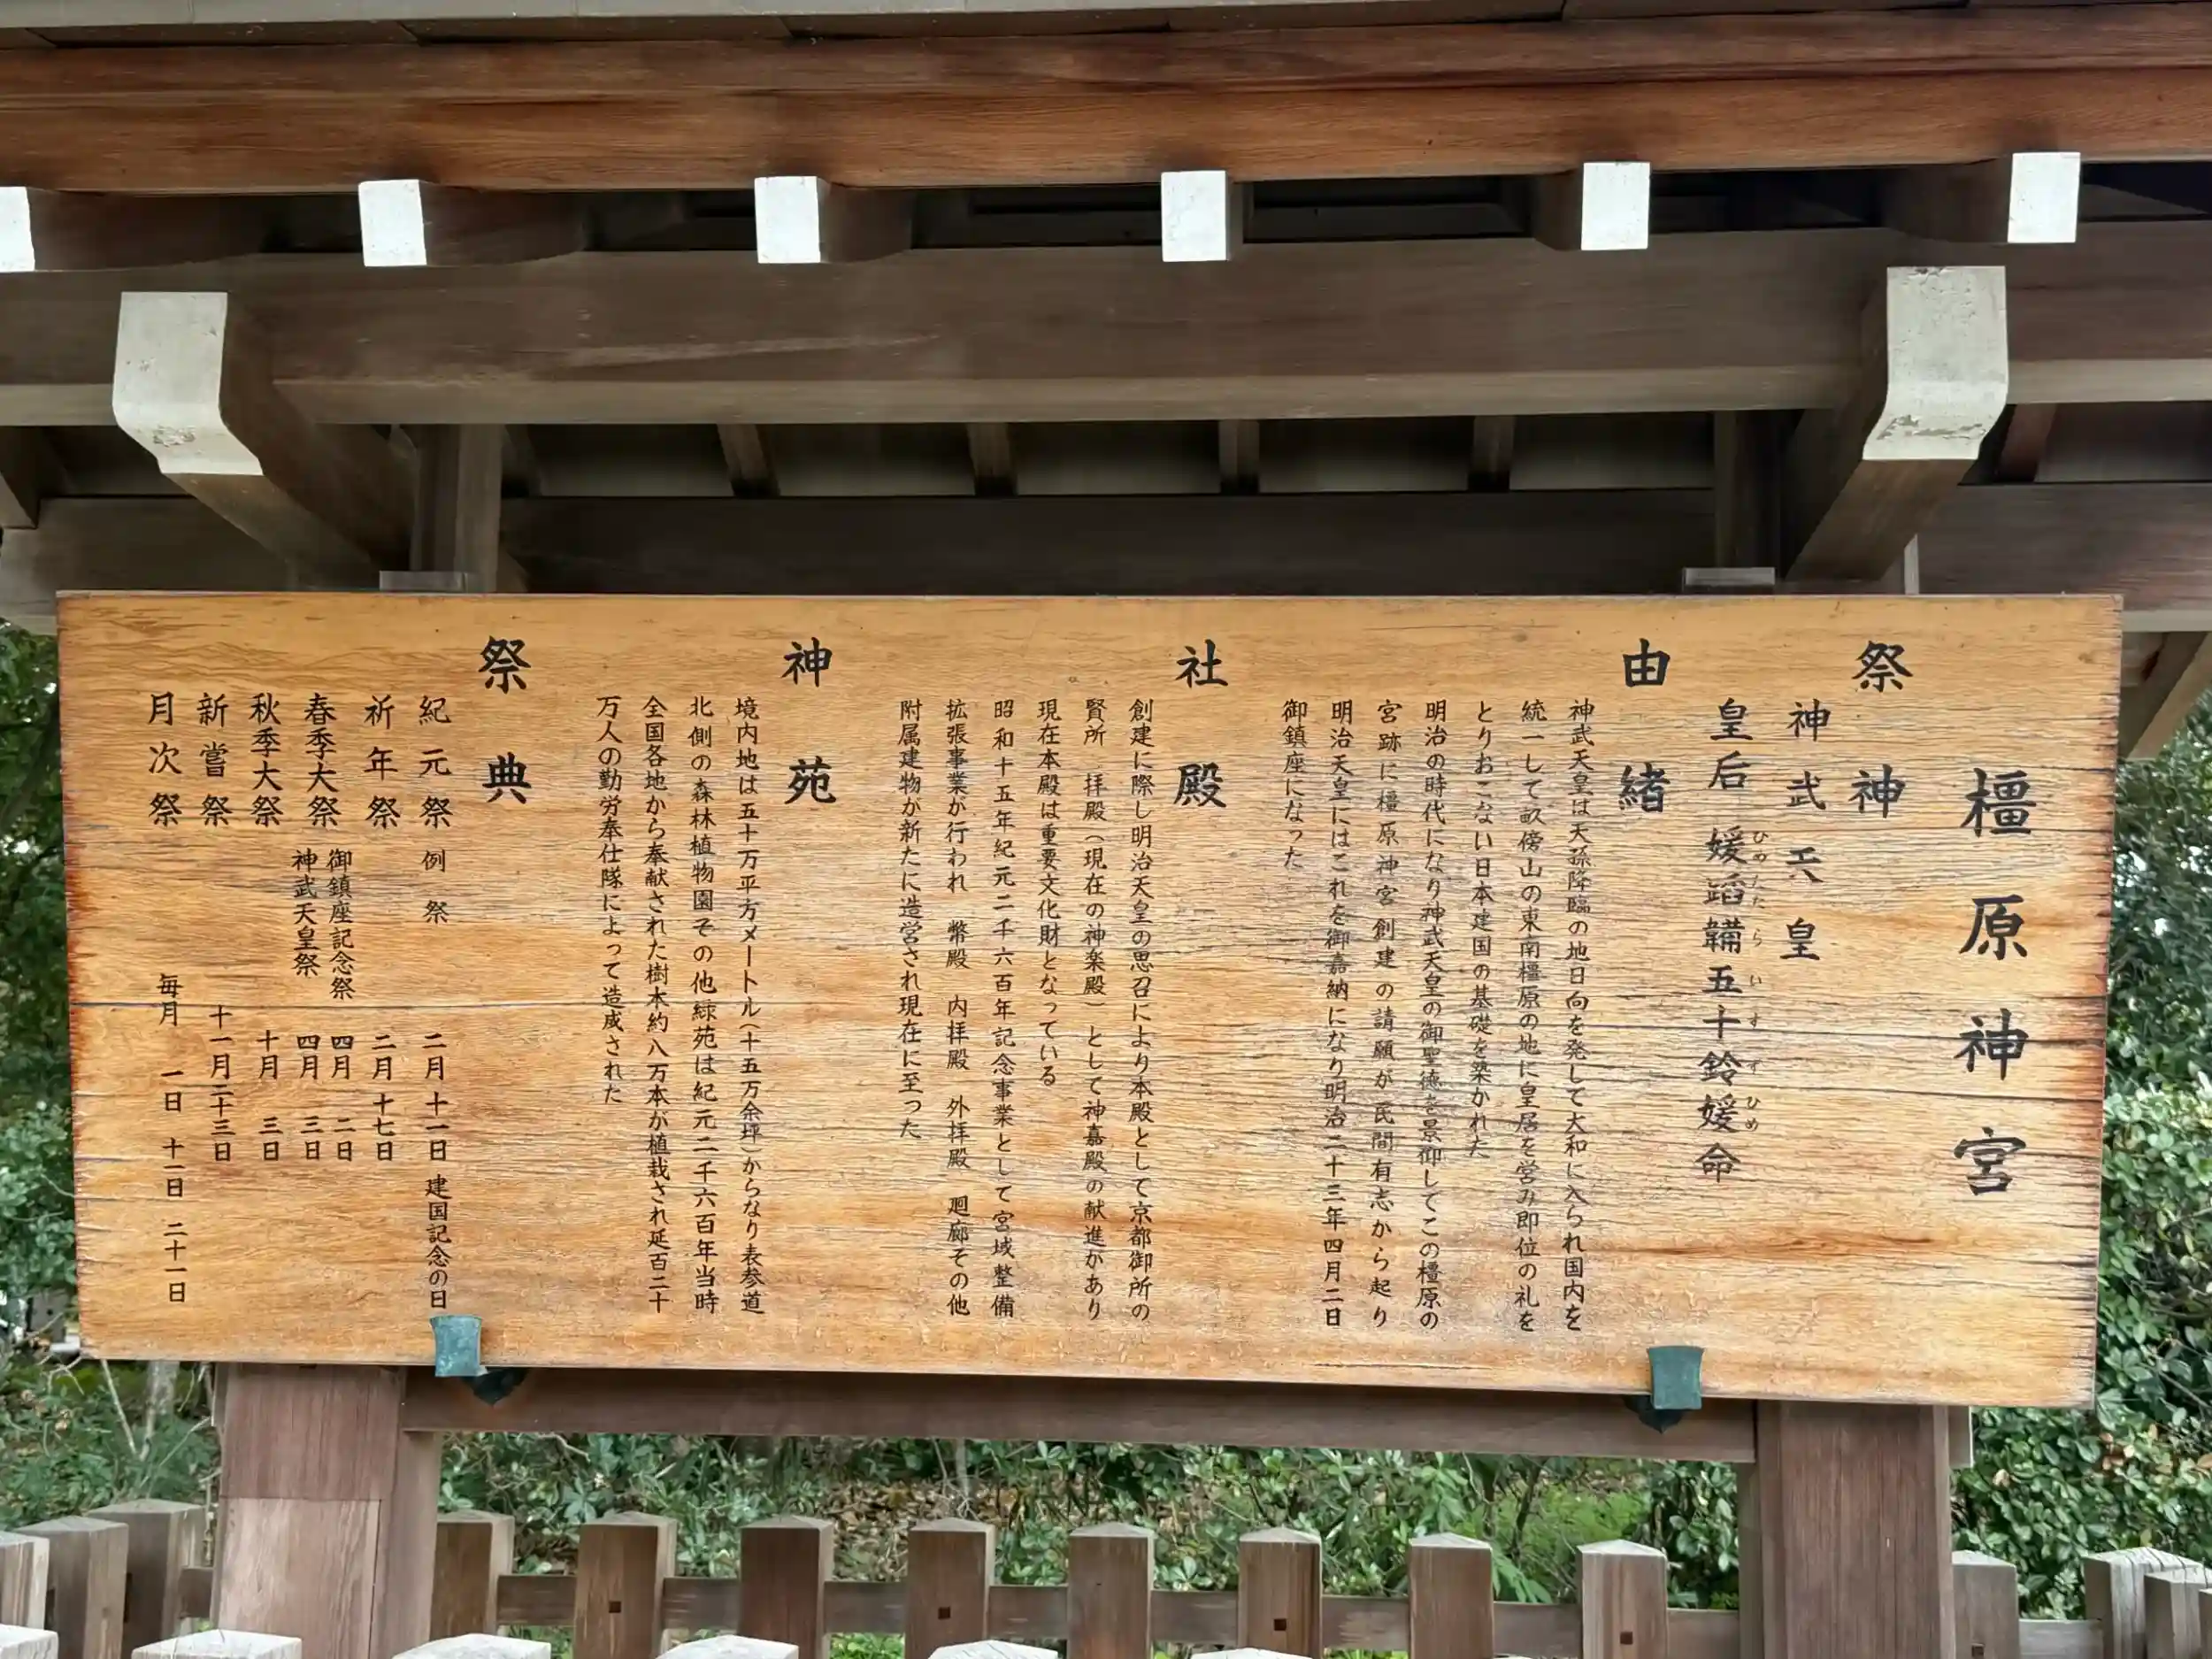 橿原神宮
祭神
神武天皇
皇后 媛蹈韛五十鈴媛命
ひめたたらいすずひめ
由緒
神武天皇は天孫降臨の地日向を発して大和に入られ国内を
統一して畝傍山の東南橿原の地に皇居を営み即位の礼を
とりおこない日本建国の基礎を築かれた
明治の時代になり神武天皇の御聖徳を景仰してこの橿原の
宮跡に橿原神宮創建の請願が民間有志から起り
明治天皇にはこれを御嘉納になり明治二十三年四月二日
御鎮座になった
社殿
創建に際し明治天皇の思召により本殿として京都御所の
賢所 拝殿(現在の神楽殿)として神嘉殿の献進があり
現在本殿は重要文化財となっている
昭和十五年紀元二千六百年記念事業として宮域整備
拡張事業が行われ 幣殿 内拝殿 外拝殿 廻廊その他
附属建物が新たに造営され現在に至った
神苑
境内地は五十万平方メートル(十五万余坪)からなり表参道
北側の森林植物園その他緑苑は紀元二千六百年当時
全国各地から奉献された樹木約八万本が植栽され延百二十
万人の勤労奉仕隊によって造成された
祭典
紀元祭 例祭 二月十一日 建国記念の日
祈年祭 二月十七日
春季大祭 御鎮座記念祭 四月 二日
神武天皇祭 四月 三日
秋季大祭 十月 三日
新嘗祭 十一月二十三日
月次祭 毎月 一日 十一日 二十一日